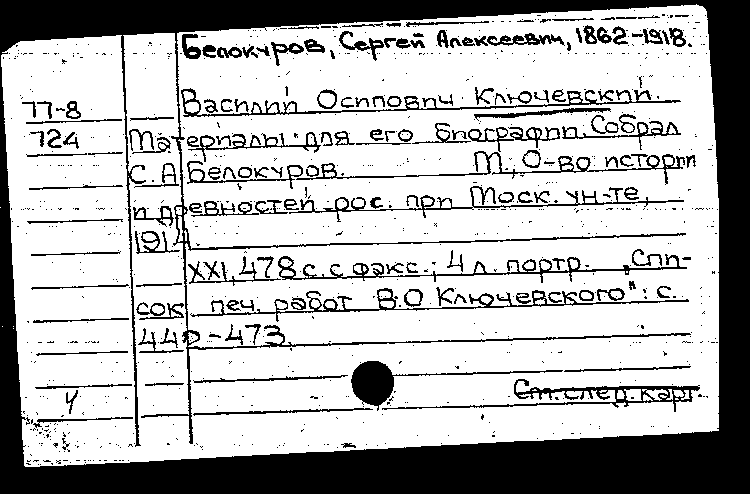 Белокуров, Сергей Алексеевич, 1862-1918.
77-8
Василий Осипович Ключевский.
724
Материалы для его биографии. Собрал
С. А Белокуров. М., О-во истории
и древностей рос. при Моск. ун-те,
1914.
XXI, 478 с. с факс.; 4 л. портр. „Спи-
сок печ. работ В.О Ключевского": с.
442-473
См. след. карт.